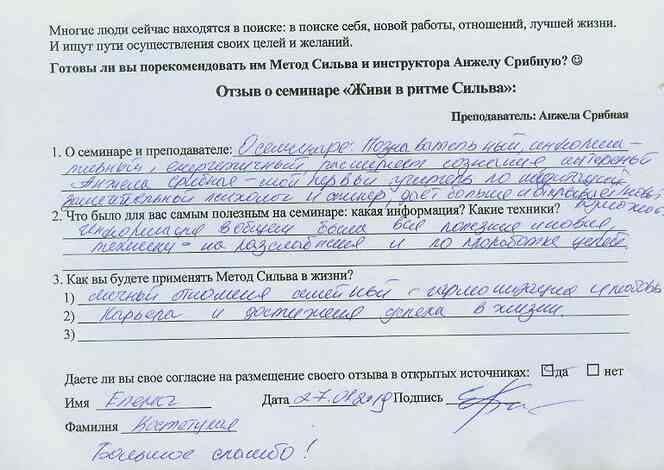 Многие люди сейчас находятся в поиске: в поиске себя, новой работы, отношений, лучшей жизни.
И ищут пути осуществления своих целей и желаний.
Готовы ли вы порекомендовать им Метод Сильва и инструктора Анжелу Срибную? ☺
Отзыв о семинаре «Живи в ритме Сильва»:
Преподаватель: Анжела Срибная
1. О семинаре и преподавателе: О семинаре: Познавательный, информа-
тивный, енергетичный расширяет сознание интересный
Анжела Срибная - мой первый учитель по медитаций
замечательный психолог и дает больше и
2. Что было для вас самым полезным на семинаре: какая информация? Какие техники?
Информация в общем была вся полезная и новая,
техники - на расслабления и по проработке целей.
3. Как вы будете применять Метод Сильва в жизни?
1) личный отношения семейный - гармонизация и любовь
2) Карьера и достижения успеха в жизни.
3)
Даете ли вы свое согласие на размещение своего отзыва в открытых источниках: да нет
Имя Елена Дата Подпись
Фамилия
Большое спасибо!